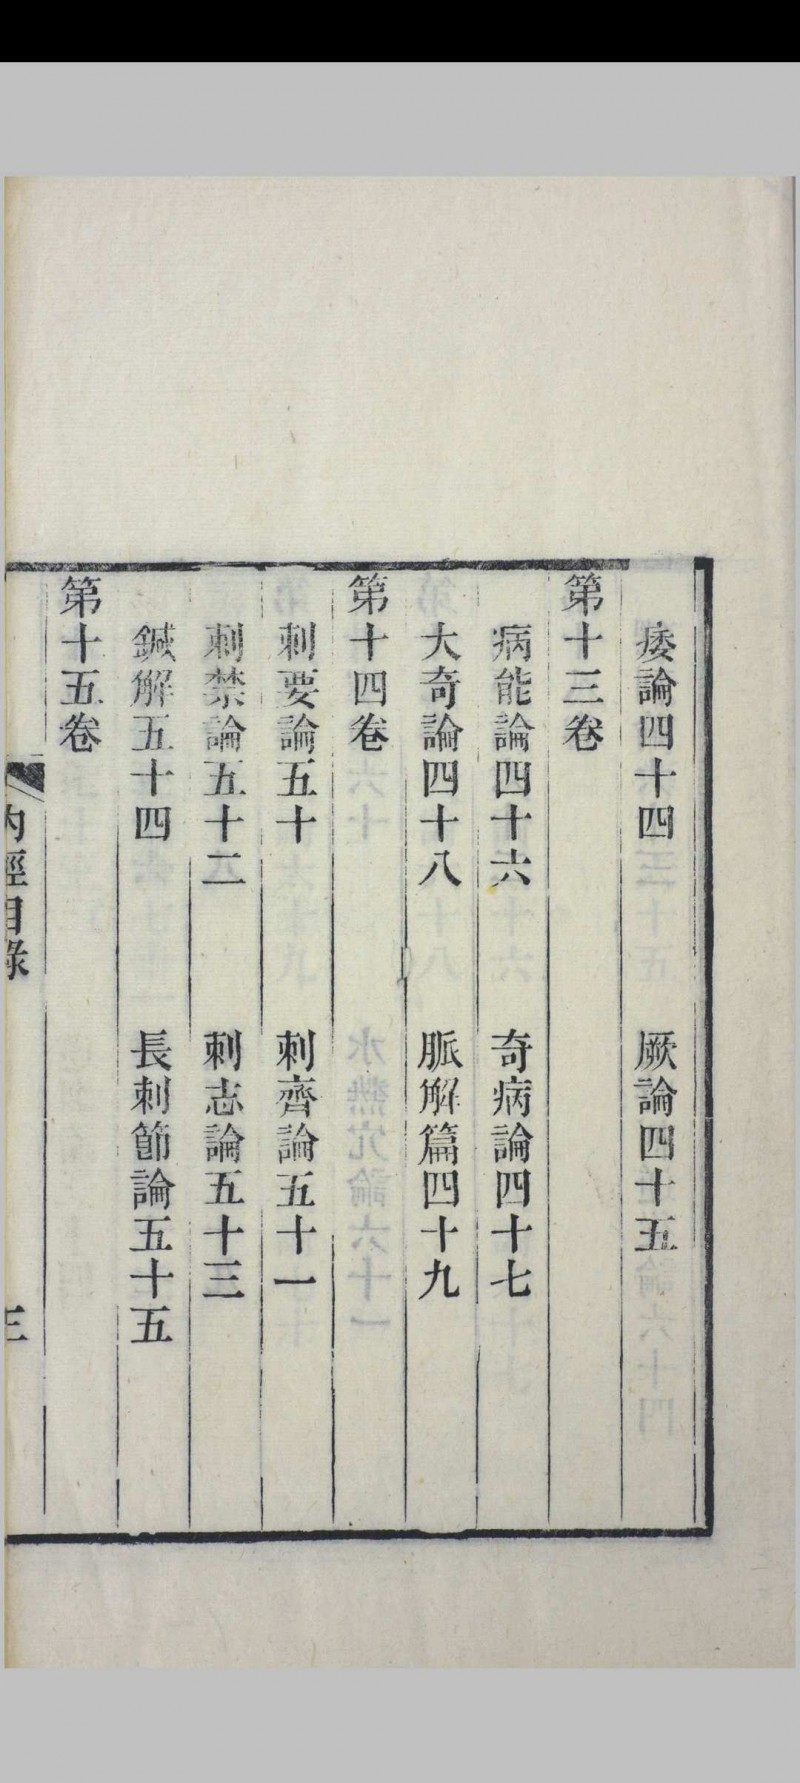 痿論四十四　厥論四十五
第十三卷
病能論四十六　奇病論四十七
大奇論四十八　脈解篇四十九
第十四卷
刺要論五十　刺齊論五十一
刺禁論五十二　刺志論五十三
鍼解五十四　長刺節論五十五
第十五卷
內經目錄　三